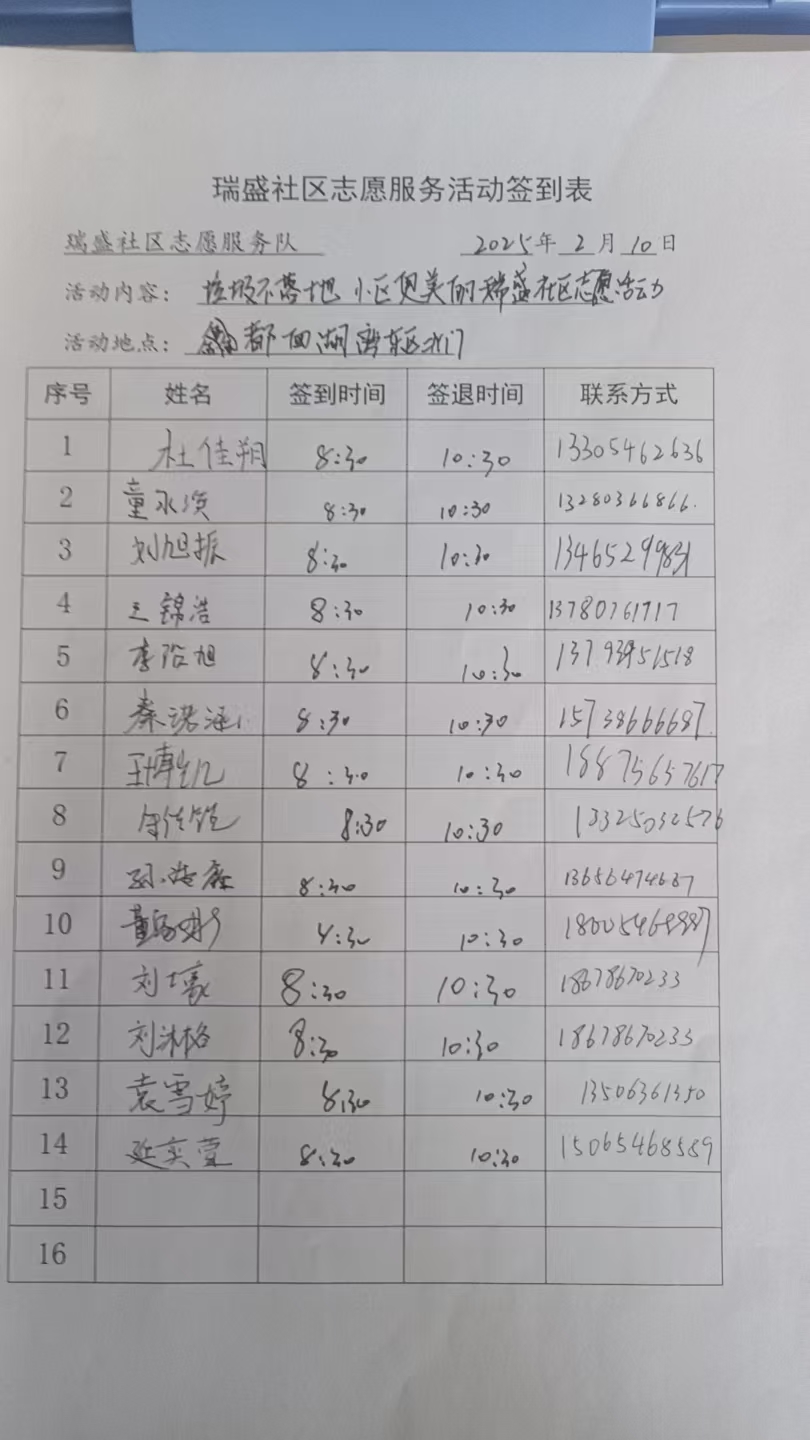 瑞盛社区志愿服务活动签到表
瑞盛社区志愿服务队 2025年2月10日
活动内容: 垃圾不落地 小区更美丽瑞盛社区志愿活动
活动地点: 都西湖
序号 姓名 签到时间 签退时间 联系方式
1 杜佳朔 8:30 10:30 13305462636
2 童永 8:30 10:30 13280366866.
3 刘旭振 8:30 10:30
4 王锦浩 8:30 10:30 13780761717
5 李 旭 8:30 10:30
6 秦诺涵 8:30 10:30 15738666687
7 王博凯 8:30 10:30 18875657617
8 8:30 10:30 13325032576
9 孙 8:30 10:30 13656474687
10 10:30
11 刘壕 8:30 10:30 18678670233
12 刘沐格 8:30 10:30 18678670233
13 袁雪婷 8:30 10:30 13506361350
14 延奕萱 8:30 10:30 15065468589
15
16